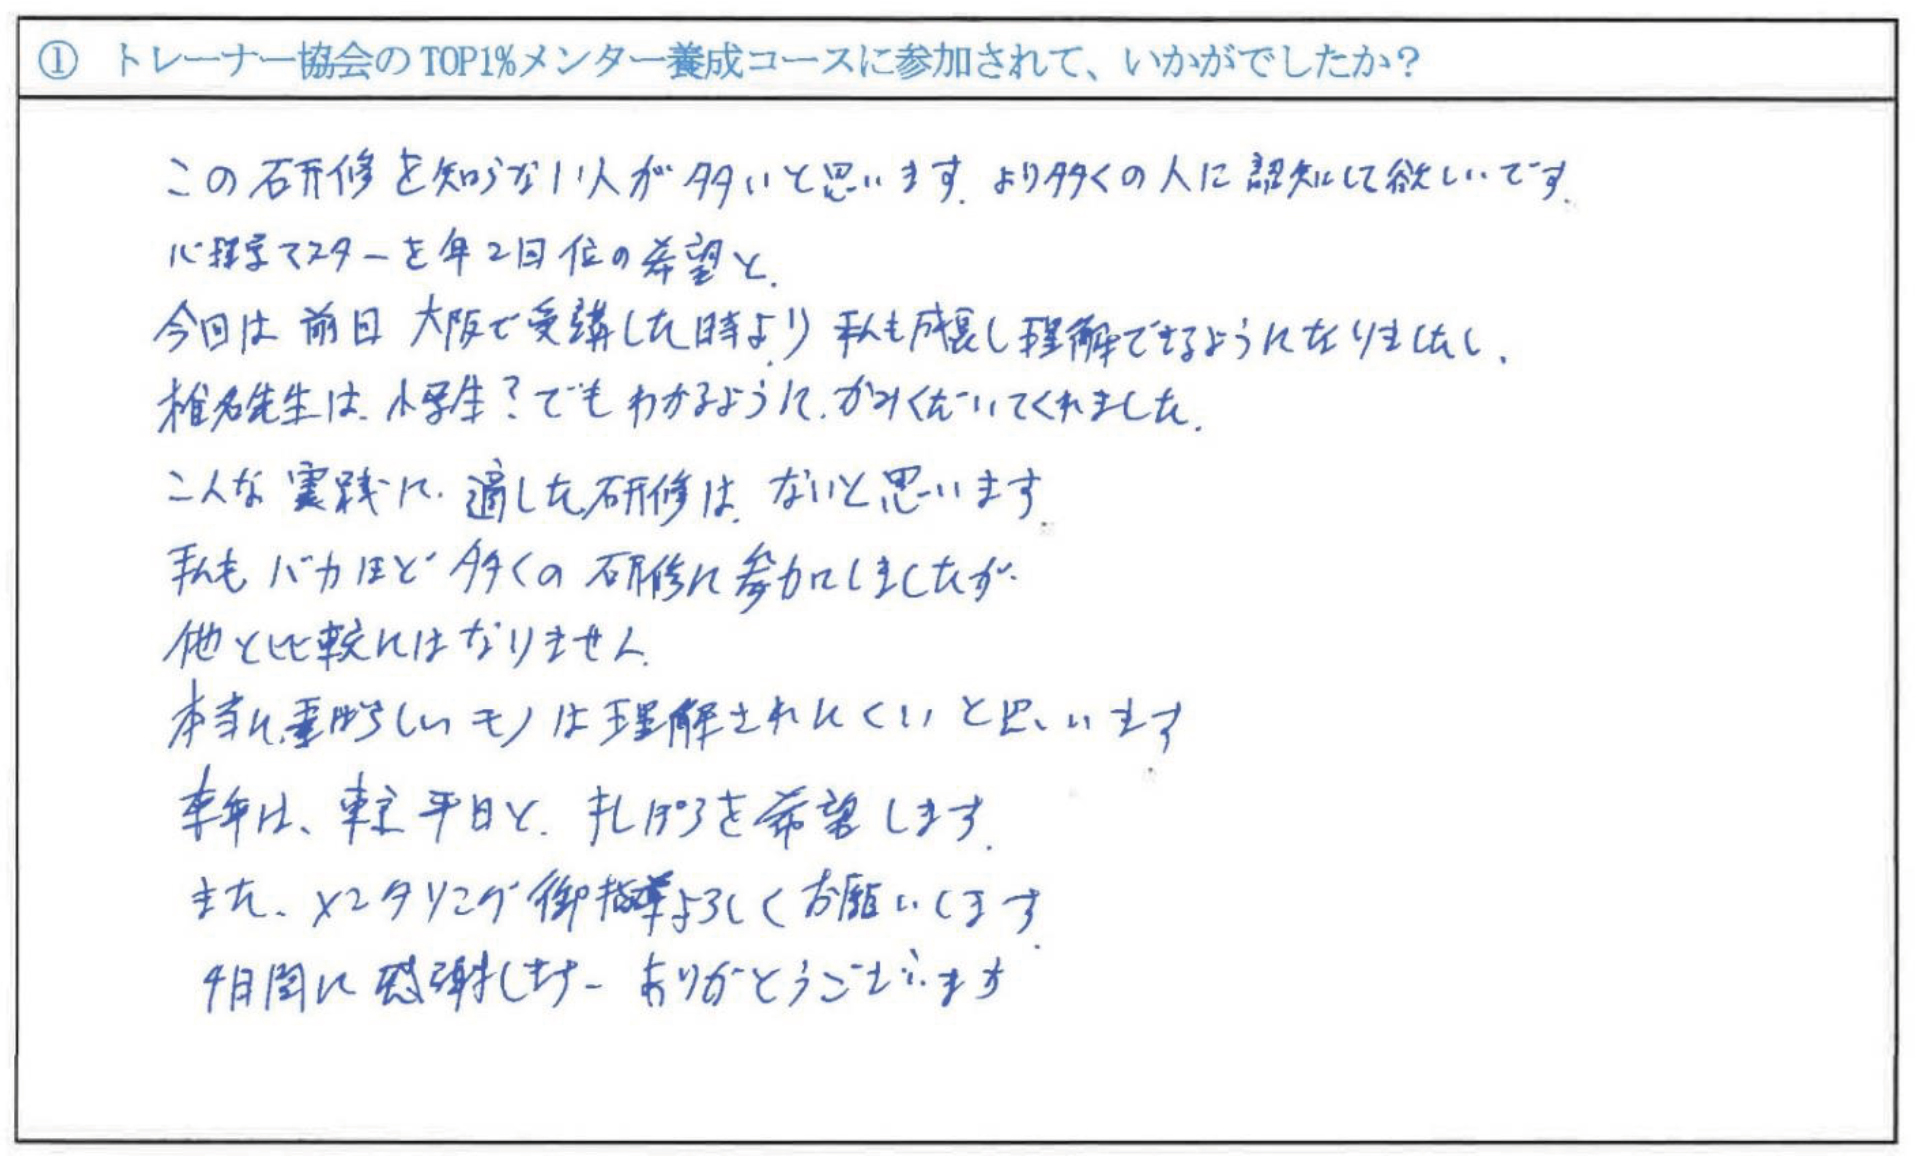 ① トレーナー協会のTOP1%メンター養成コースに参加されて、いかがでしたか？
この研修を知らない人が多いと思います。より多くの人に認知して欲しいです。
心理学マスターを年2回位の希望と、
今回は前回大阪で受講した時より私も成長し理解できるようになりましたし、
椎名先生は、小学生？でもわかるように、かみくだいてくれました。
こんな実践に、適した研修は、ないと思います。
私もバカほど多くの研修に参加しましたが、
他と比較にはなりません。
本当に素晴らしいモノは理解されにくいと思います
来年は、東京平日と、札ぽろを希望します。
また、メンタリング御指導よろしくお願いします。
4日間に感謝します－ありがとうございます